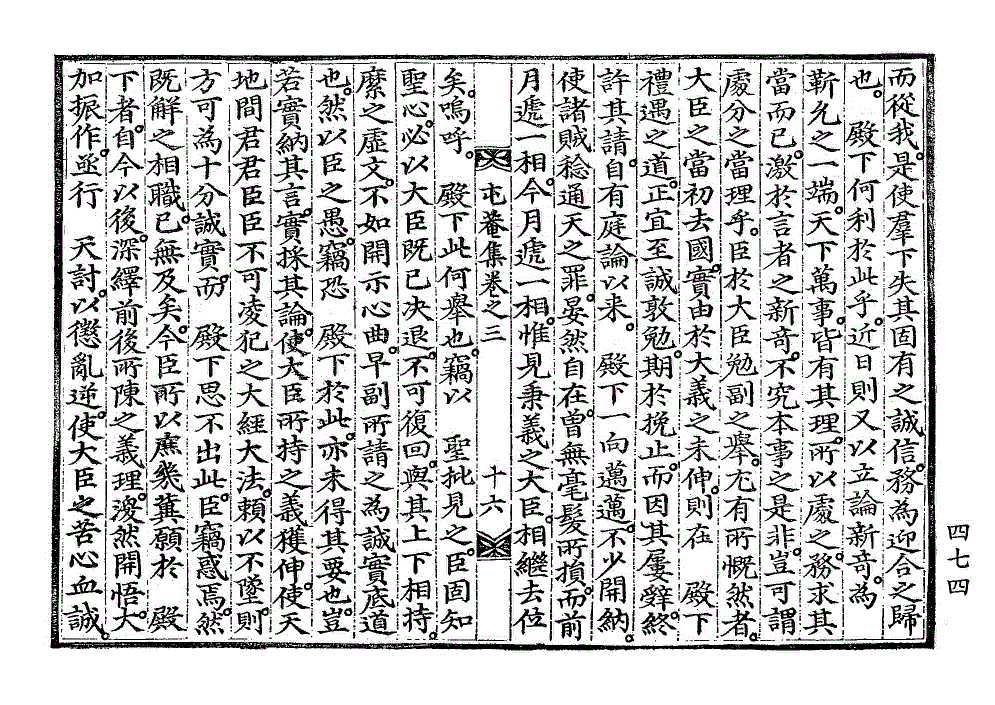 而從我。是使羣下失其固有之誠信。務為迎合之歸
也。 殿下何利於此乎。近日則又以立論新奇。為
靳允之一端。天下萬事。皆有其理。所以處之。務求其
當而已。激於言者之新奇。不究本事之是非。豈可謂
處分之當理乎。臣於大臣勉副之擧。尤有所慨然者。
大臣之當初去國。實由於大義之未伸。則在 殿下
禮遇之道。正宜至誠敦勉。期於挽止。而因其屢辭。終
許其請。自有庭論以来。 殿下一向邁邁。不少開納。
使諸賊稔通天之罪。晏然自在。曾無毫髮所損。而前
月遞一相。今月遞一相。惟見秉義之大臣。相繼去位
屯菴集卷之三 十六
矣。嗚呼。 殿下此何擧也。竊以 聖批見之。臣固知
聖心必以大臣既已決退。不可復回。與其上下相持。
縻之虛文。不如開示心曲。早副所請之為誠實底道
也。然以臣之愚。竊恐 殿下於此。亦未得其要也。豈
若實納其言。實採其論。使大臣所持之義獲伸。使天
地間君君臣臣不可凌犯之大經大法。賴以不墜。則
方可為十分誠實。而 殿下思不出此。臣竊惑焉。然
既解之相職。已無及矣。今臣所以庶幾冀願於 殿
下者。自今以後。深繹前後所陳之義理。渙然開悟。大
加振作。亟行 天討。以懲亂逆。使大臣之苦心血誠。
四七四